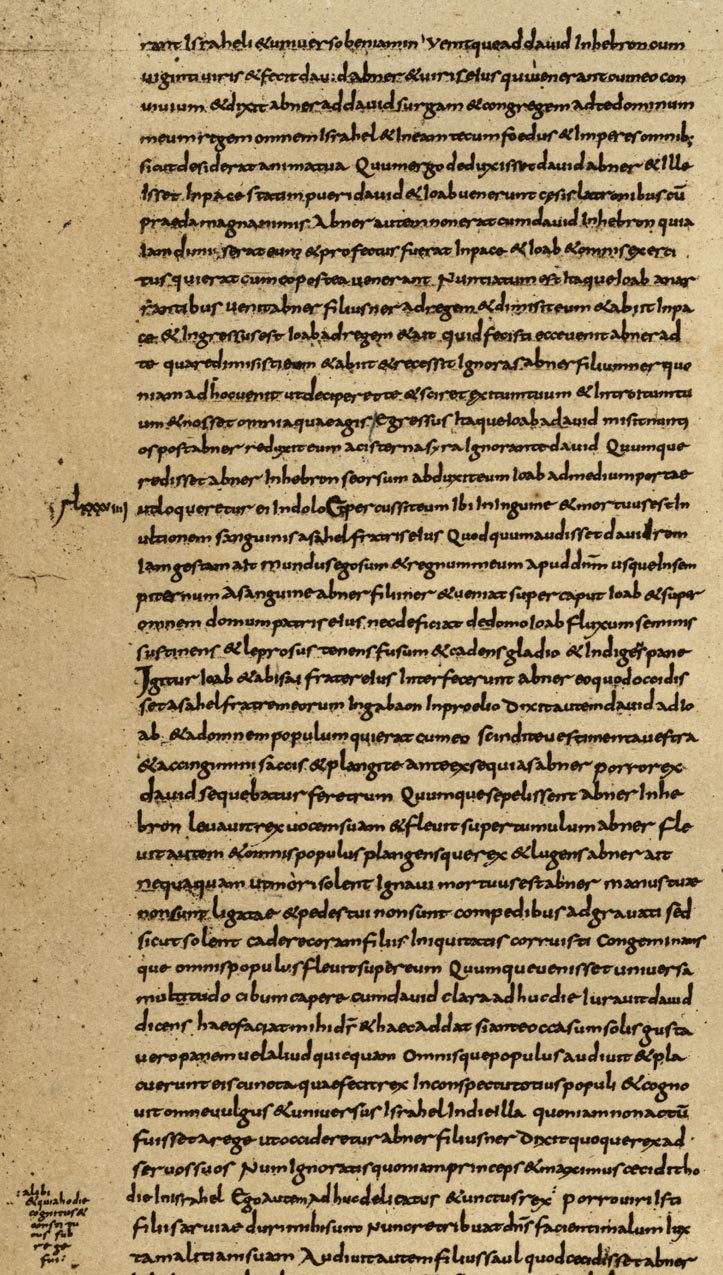 rant Israheli & universo beniamin Venitque ad david In hebron cum
viginti viris & fecit david abner & viris eius qui venerant cum eo con
vivium & dixit abner ad david surgam & congregem ad te dominum
meum regem omnem Israhel & Ineam tecum foedus & Imperes omnib;
sicut desiderat anima tua Quum ergo deduxisset david abner & Ille
Isset In pace statim pueri david & Ioab venerunt cęsis latronibus cū
praeda magna nimis Abner autem non erat cum david In hebron quia
Iam dimiserat eum & profectus fuerat In pace & Ioab & omnis exerci
tus qui erat cum eo postea venerant Nuntiatum est Itaque Ioab a nar
rantibus venit abner filius ner ad regem & dimisit eum & abiit In pa
ce & Ingressus est Ioab ad regem & ait quid fecisti ecce venit abner ad
te quare dimisisti eum & abiit & recessit Ignoras abner filium ner quo
niam ad hoc venit ut deciperet te & sciret exitum tuum & Introitum tu
um & nosset omnia quae agis Egressus Itaque Ioab a david misit nunti
os post abner reduxit eum a cisterna syra Ignorante david Quumque
redisset abner In hebron seorsum abduxit eum Ioab ad medium portae
lxxxviiii
ut loqueretur ei In dolo & percussit eum Ibi In Inguine & mortuus est In
ultionem sanguinis asahel fratris eius Quod quum audisset david rem
Iam gestam ait Mundus ego sum & regnum meum apud dnm usque In sem
piternum A sanguine abner fili ner & veniat super caput Ioab & super
omnem domum patris eius nec deficiat de domo Ioab fluxum seminis
sustinens & leprosus tenens fusum & cadens gladio & Indigens pane
Igitur Ioab & abisai frater eius Interfecerunt abner eo quod occidis
set asahel fratrem eorum In gabaon In proelio Dixit autem david ad Io
ab & ad omnem populum qui erat cum eo scindite vestimenta vestra
& accingimini saccis & plangite ante exsequias abner porro rex
david sequebatur feretrum Quumque sepelissent abner In he
bron levavit rex vocem suam & flevit super tumulum abner fle
vit autem & omnis populus plangensque rex & lugens abner ait
nequaquam ut mori solent Ignavi mortuus est abner manus tuae
non sunt ligatae & pedes tui non sunt compedibus adgravati sed
sicut solent cadere coram filiis Iniquitatis corruisti Congeminans
que omnis populus flevit super eum Quumque venisset universa
multitudo cibum capere cum david clara adhuc die Iuravit david
dicens haec faciat mihi dś & haec addat si ante occasum solis gusta
vero panem vel aliud quicquam Omnisque populus audivit & pla
cuerunt eis cuncta quae fecit rex In conspectu totius populi & cogno
vit omne vulgus & universus Israhel In die Illa quoniam non actū
fuisset a rege ut occideretur abner filius ner Dixit quoque rex ad
servos suos Num Ignoratis quoniam princeps & maximus cecidit ho
die In israhel Ego autem adhuc delicatus & unctus rex porro viri Isti
filii sarviae duri mihi sunt Nunc retribuat dns facienti malum Iux
ta malitiam suam Audivit autem filius saul quod cecidisset abner
alibi
& quia hodie
cognitus &
constitu
tus sub
rege
fui